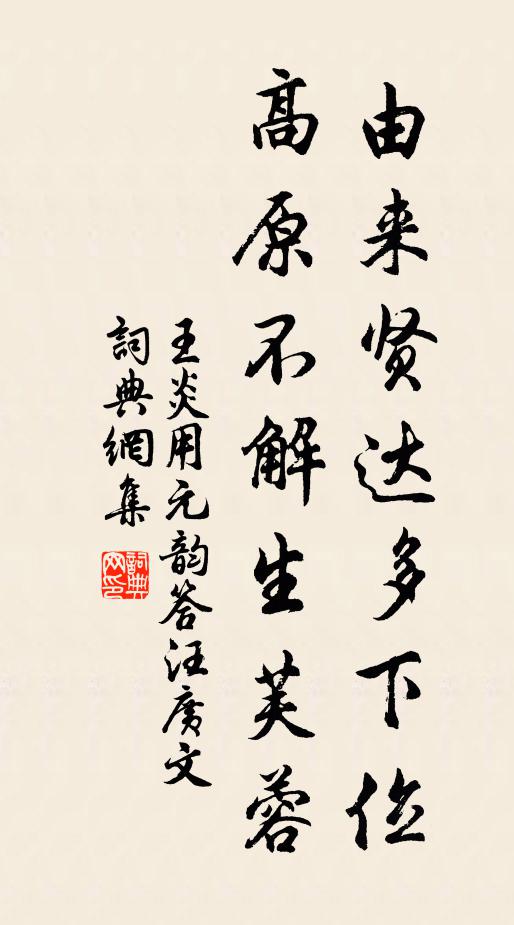 由来贤达多下位
高原不解生芙蓉
王炎用元韵答汪廣文
詞典網集
詞典网印